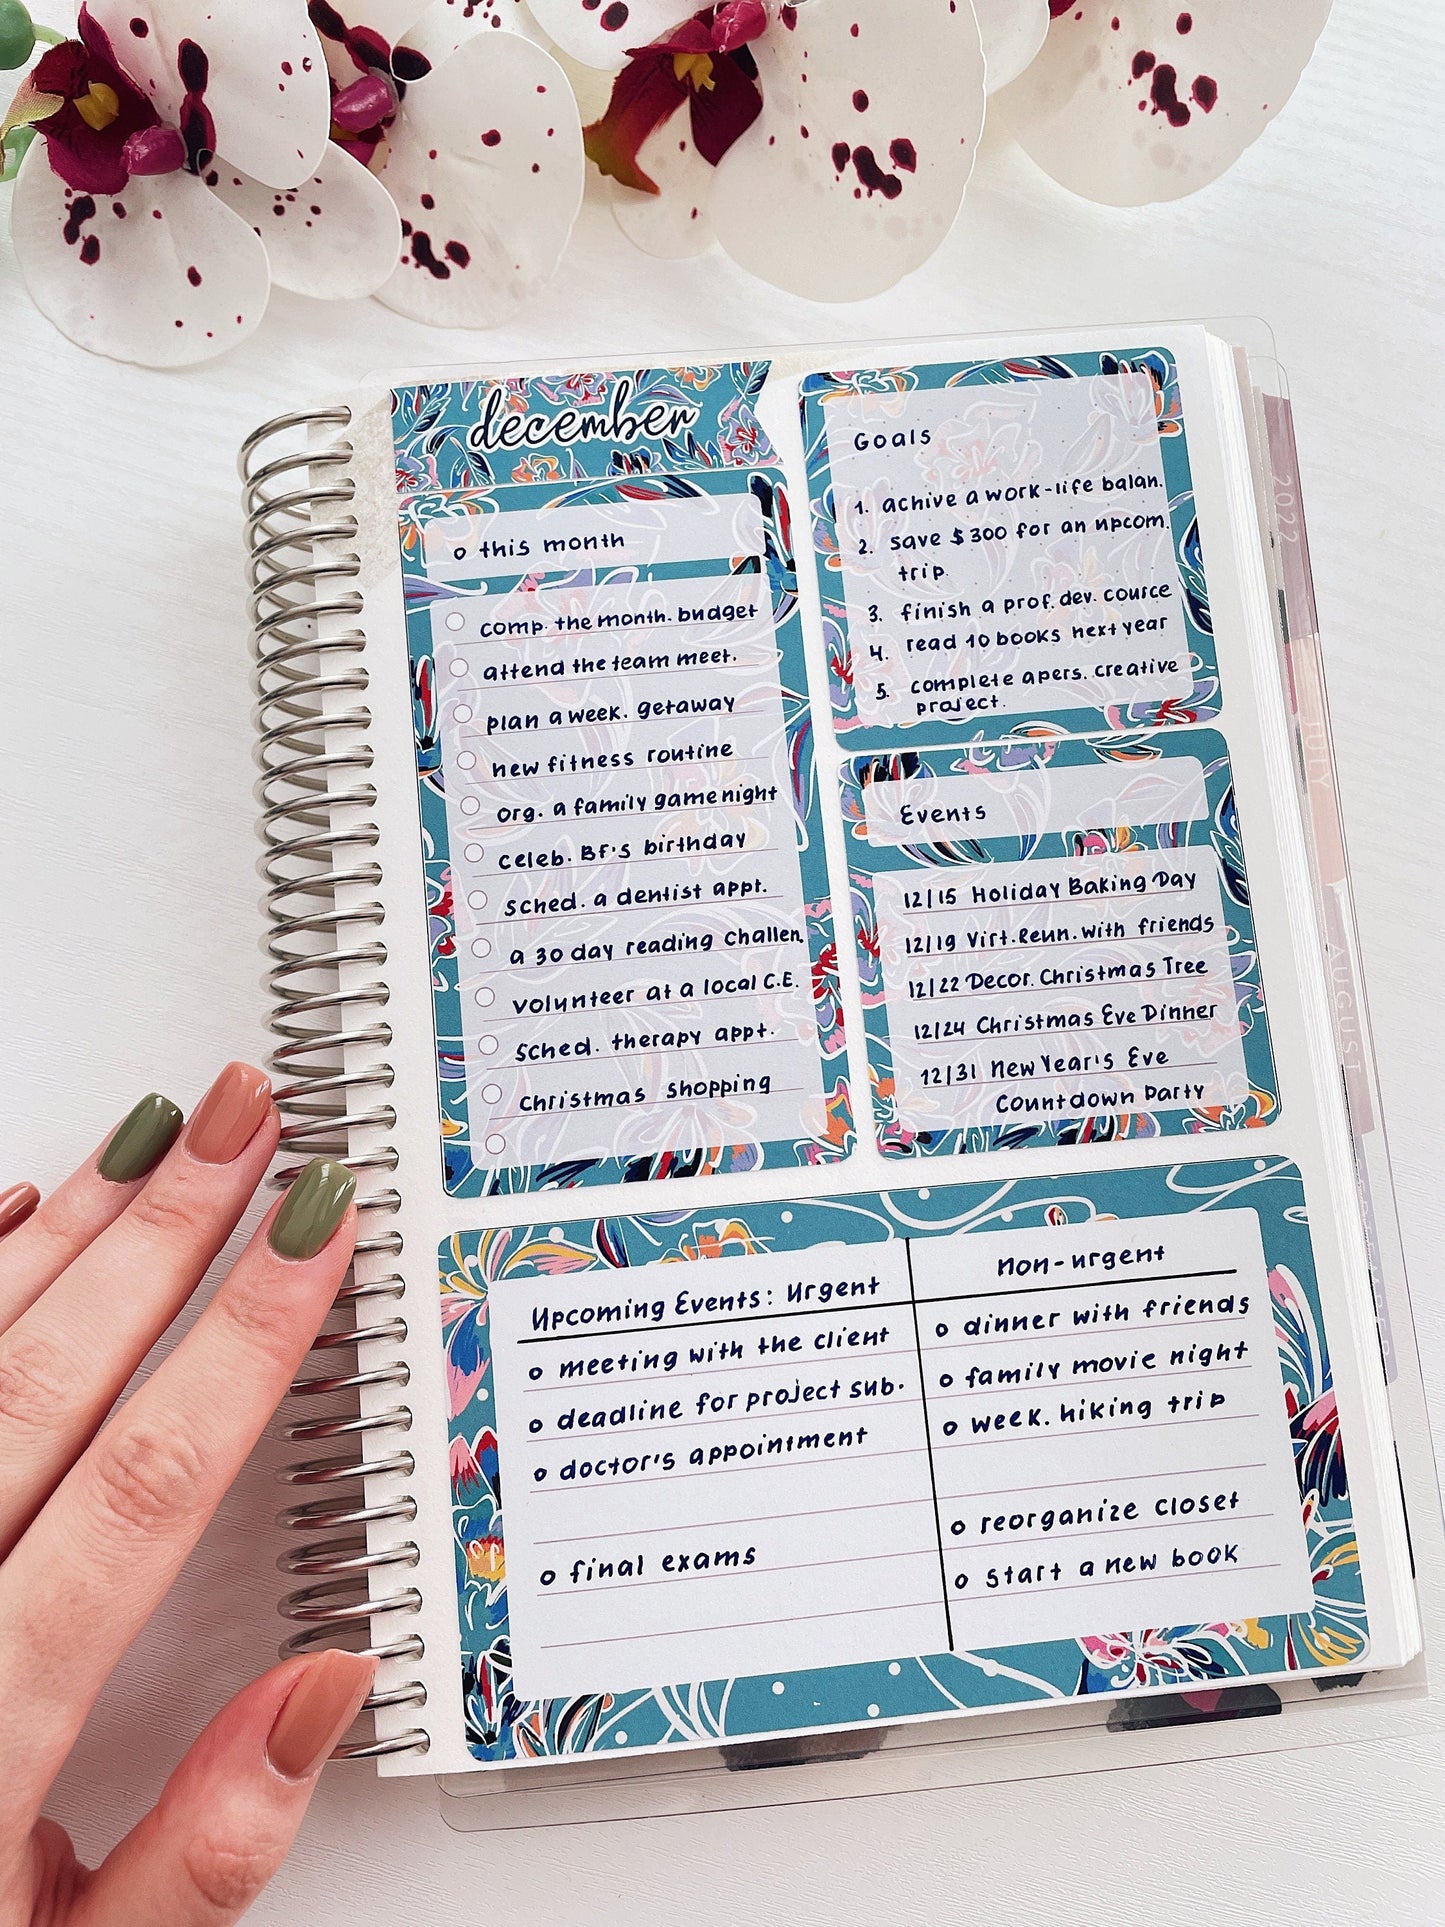 december
o this month
comp. the month. budget
attend the team meet.
plan a week. getaway
new fitness routine
org. a family game night
celeb. Bf's birthday
sched. a dentist appt.
a 30 day reading challen.
volunteer at a local C.E.
sched. therapy appt.
christmas shopping
Goals
1. achive a work-life balan.
2. save $300 for an upcom.
trip.
3. finish a prof. dev. cource
4. read 10 books next year
5. complete a pers. creative
project.
Events
12/15 Holiday Baking Day
12/19 Virt. Reun. with friends
12/22 Decor. Christmas Tree
12/24 Christmas Eve Dinner
12/31 New Year's Eve
Countdown Party
Upcoming Events: Urgent
o meeting with the client
o deadline for project sub.
o doctor's appointment
o final exams
non-urgent
o dinner with friends
o family movie night
o week. hiking trip
o reorganize closet
o start a new book
2022
JULY
AUGUST